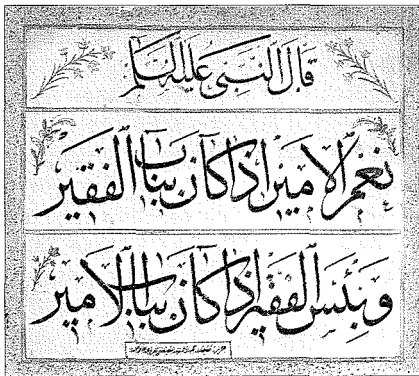 قال النبي عليه السلم
نعم الامير اذا كان بباب الفقير
وبئس الفقير اذا كان بباب الامير